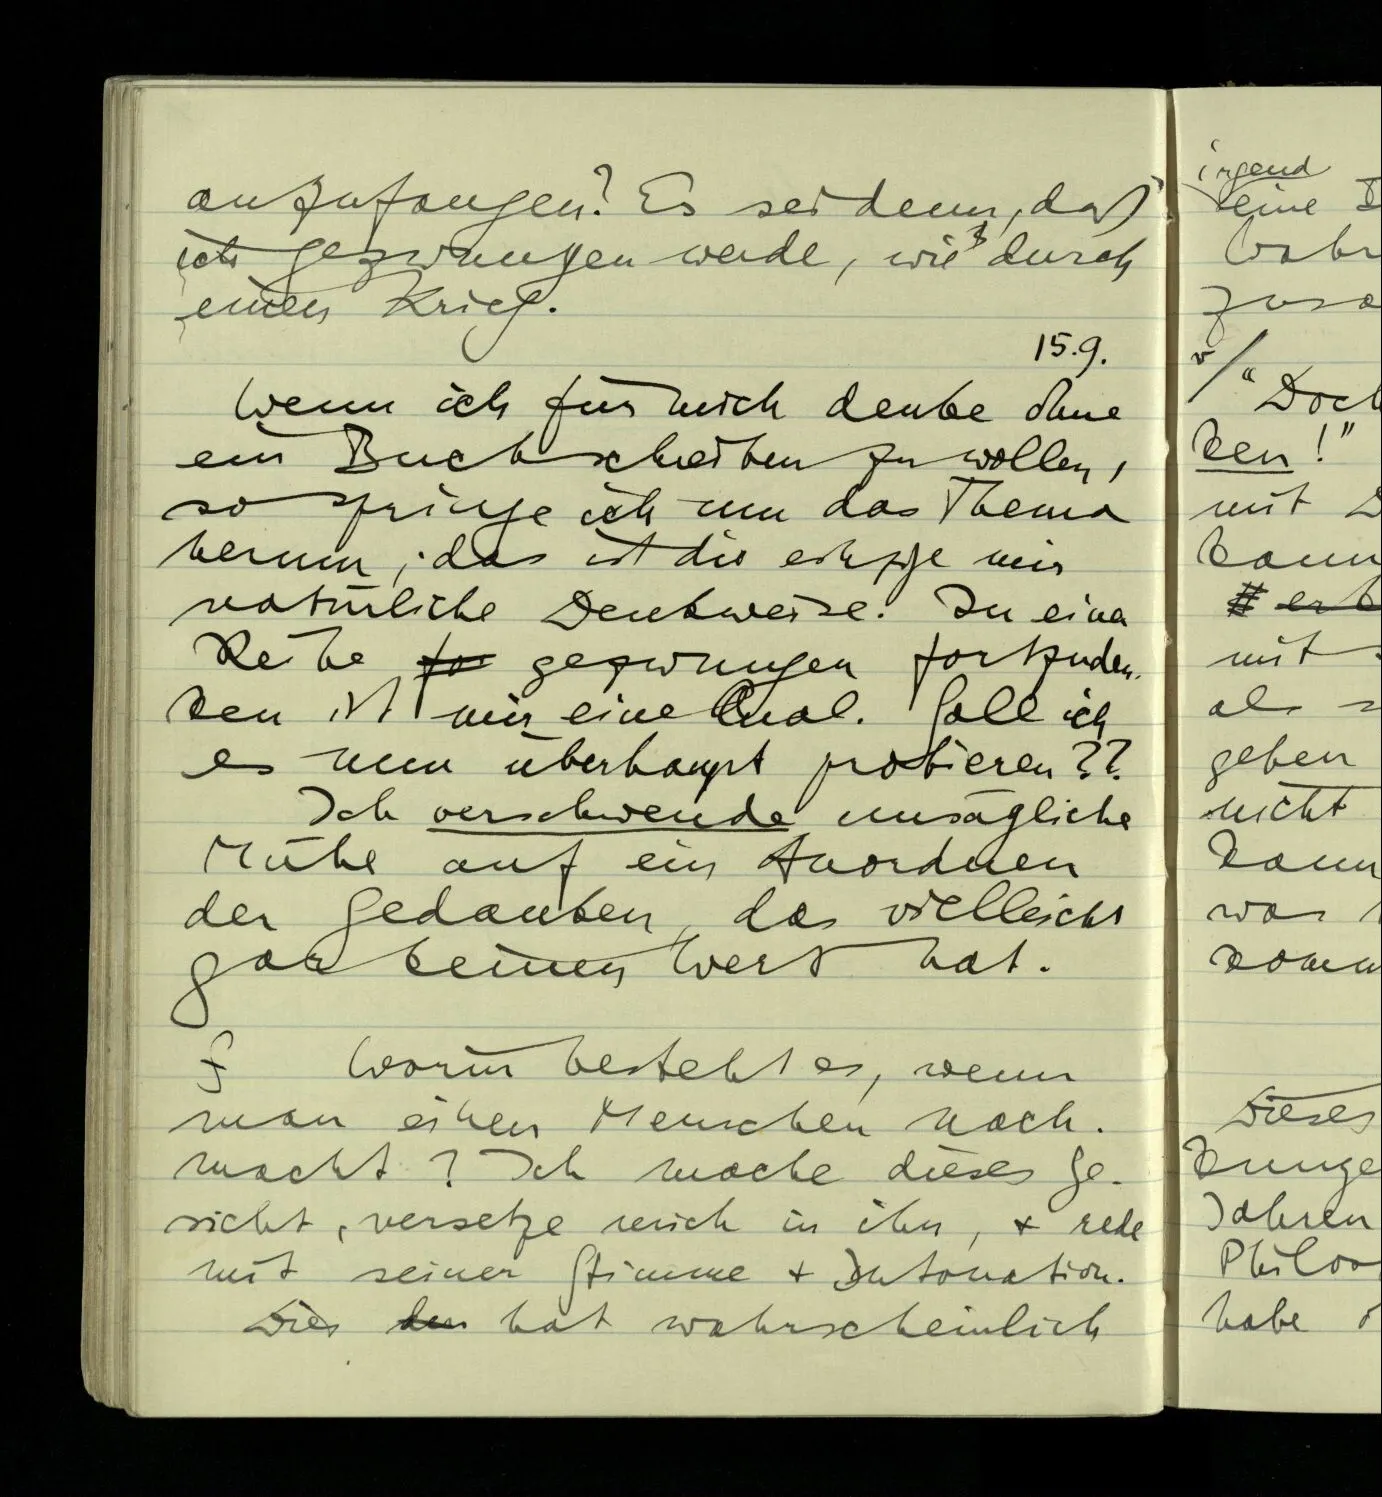 anzufangen? Es sei denn, daß
ich gezwungen werde, wie durch
einen Krieg.
15.9.
Wenn ich für mich denke ohne
ein Buch schreiben zu wollen,
so springe ich um das Thema
herum; das ist die einzige mir
natürliche Denkweise. In einer
Reihe for gezwungen fortzuden-
ken ist mir eine Qual. Soll ich
es nun überhaupt probieren??
Ich verschwende unsägliche
Mühe auf ein Anordnen
der Gedanken, das vielleicht
gar keinen Wert hat.
∫ Worin besteht es, wenn
man einen Menschen nach-
macht? Ich mache dieses Ge-
sicht, versetze mich in ihn, + rede
mit seiner Stimme + Intonation.
Dies den hat wahrscheinlich
irgend
eine
Wahr
zusa
v/ "Doch
ken!"
mit D
kann
mit
als
geben
nicht
kann
was
komm
Dieses
Junge
Jahren
Philos
habe